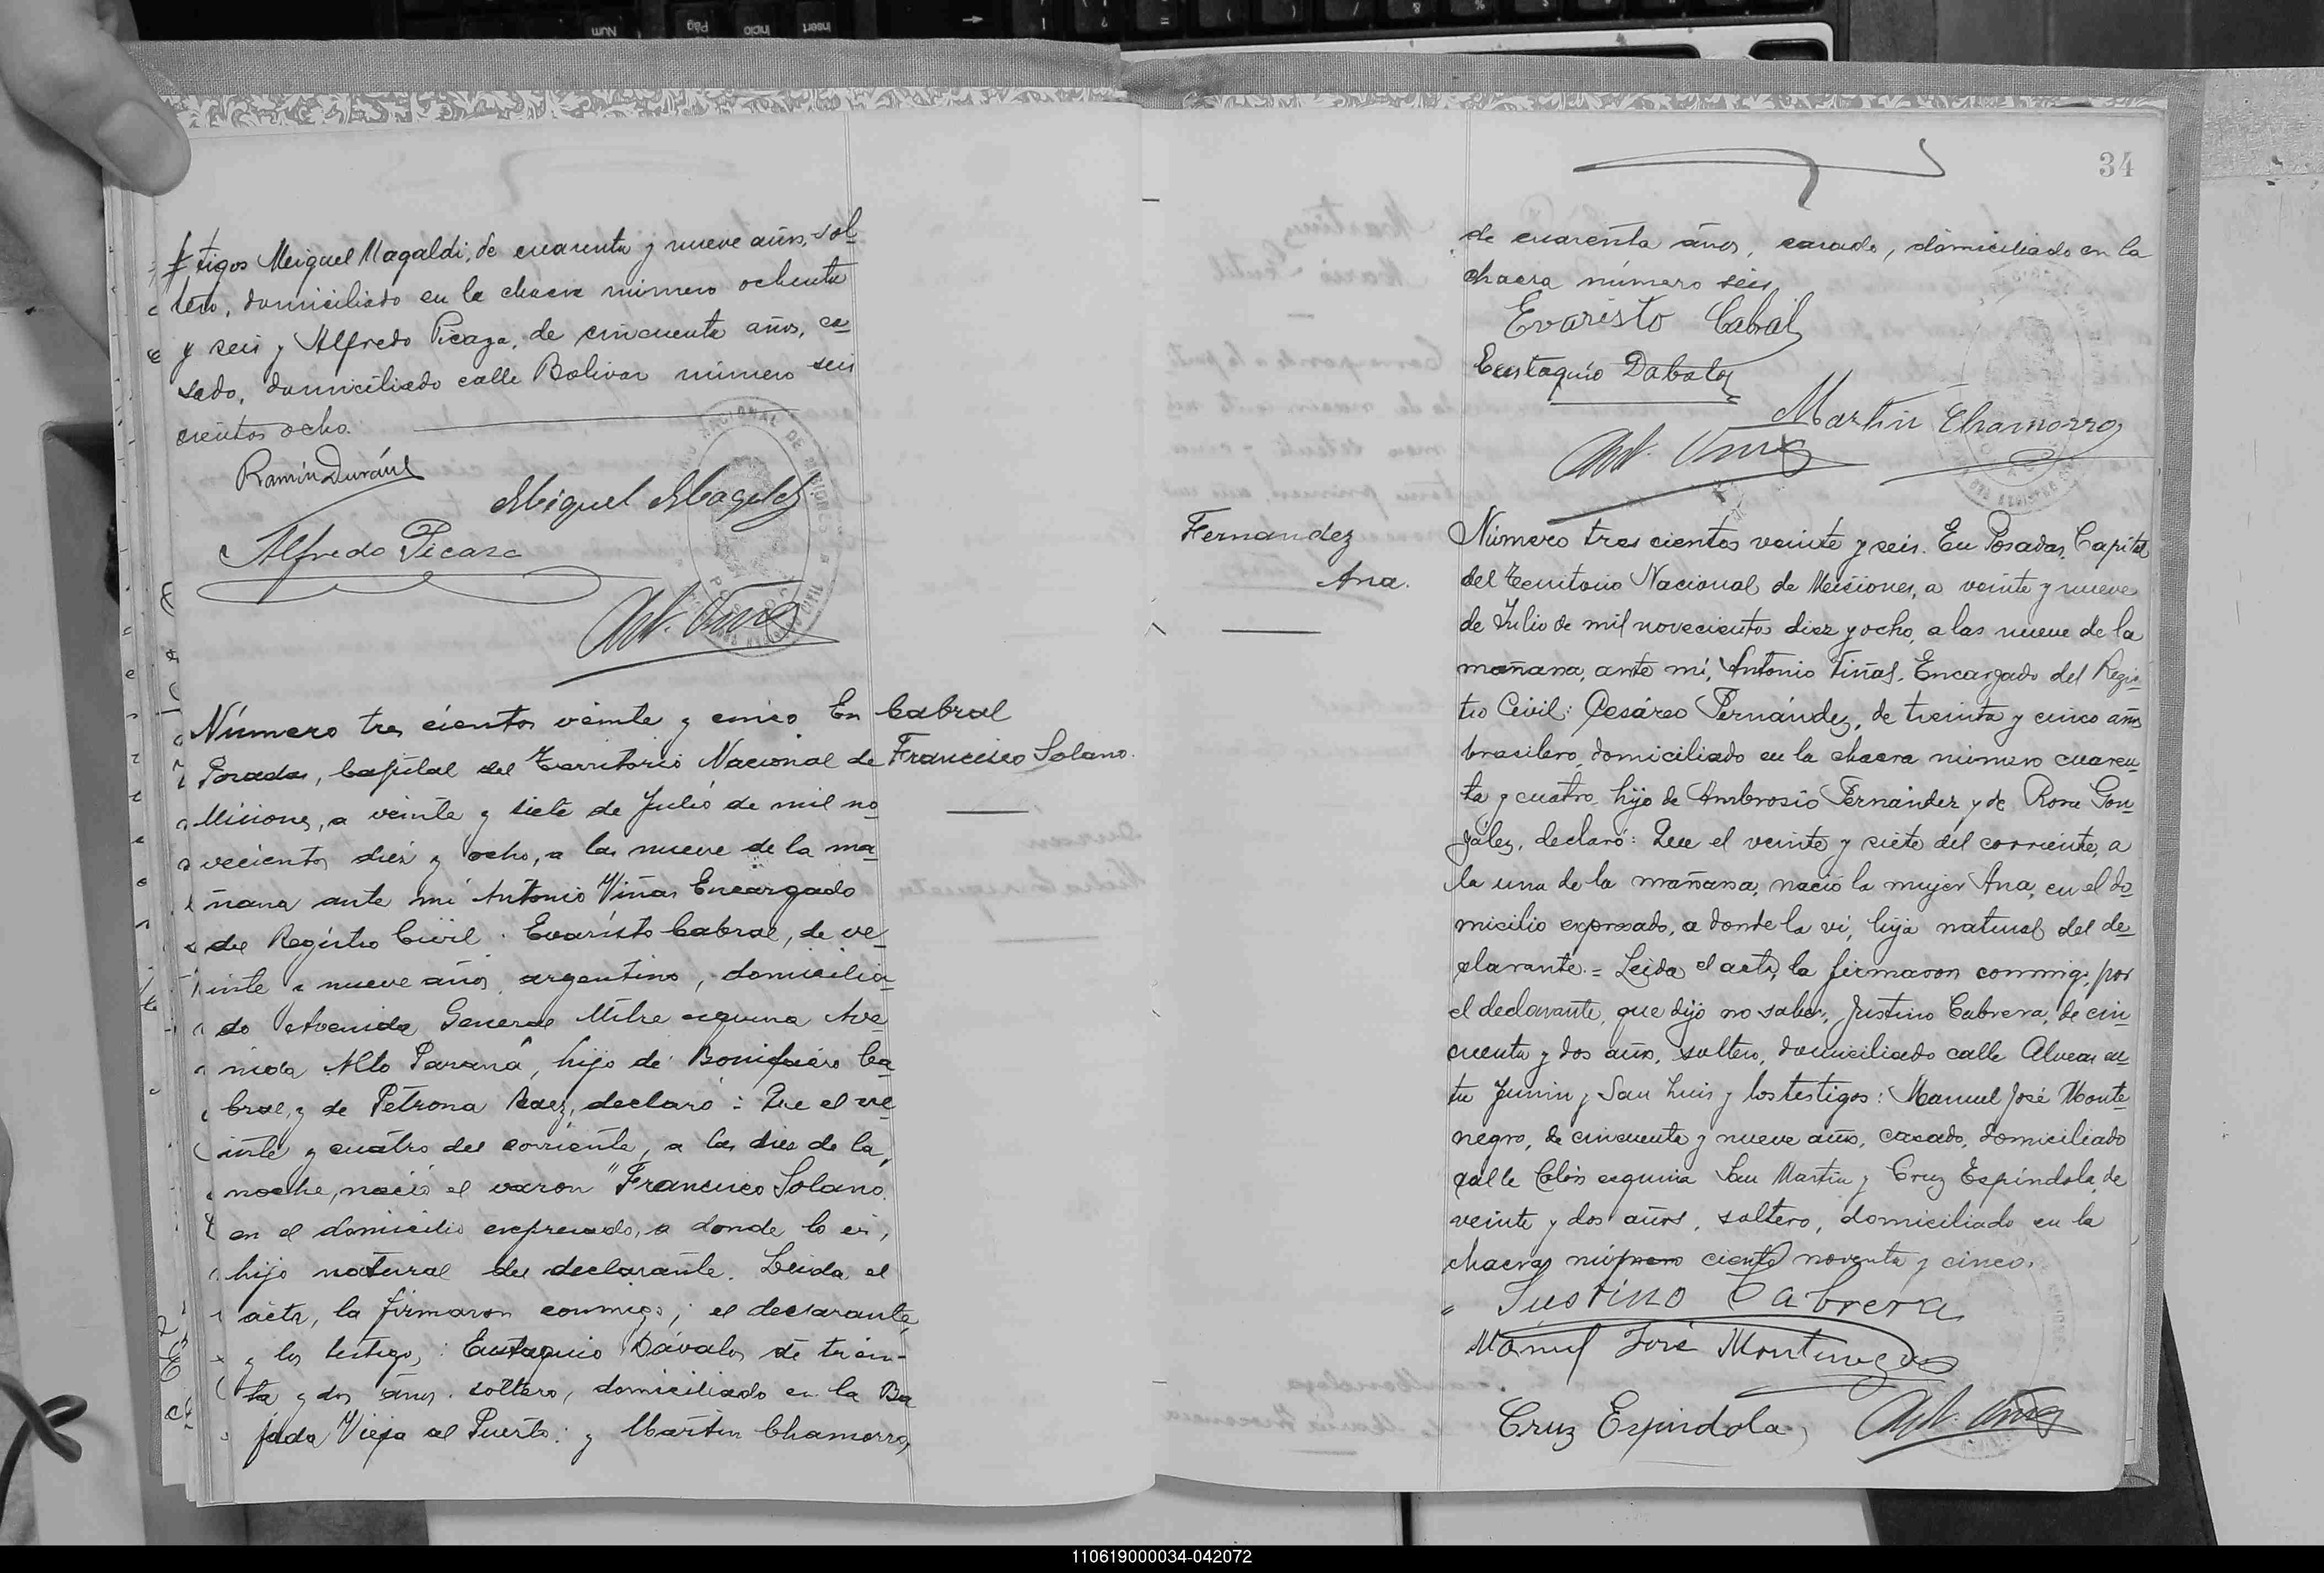 tigos Miguel Magaldi, de cuarenta y nueve años, sol-
tero, domiciliado en la chacra número ochenta
y seis y Alfredo Picaza, de cincuenta años, ca-
sado, domiciliado calle Bolivar número seis
cientos ocho.
Ramón Durán
Miguel Magaldi
Alfredo Picasa
Ant. Viñas
Número tres cientos veinte y cinco En
Posadas, Capital del Territorio Nacional de
Misiones, a veinte y siete de Julio de mil no-
vecientos diez y ocho, a las nueve de la ma-
ñana ante mi Antonio Viñas Encargado
del Registro Civil. Evaristo Cabral, de ve-
inte y nueve años, argentino, domicilia-
do Avenida General Mitre esquina Ave-
nida Alto Paraná, hijo de Bonifacio Ca-
bral, y de Petrona Baez, declaró: Que el ve-
inte y cuatro del corriente, a las diez de la
noche, nació el varon "Francisco Solano
en el domicilio expresado, a donde lo vi,
hijo natural del declarante. Leida el
acta, la firmaron conmigo; el declarante
y los testigos: Eustaquio Dávalos de trein-
ta y dos años. soltero, domiciliado en la Ba
jada Vieja al Puerto: y Martin Chamorro,
Cabral
Francisco Solano.
34
de cuarenta años, casado, domiciliado en la
chacra número seis.
Evaristo Cabral
Eustaquio Dabalos
Martin Chamorro
Ant. Viñas
Fernandez
Ana.
Número tres cientos veinte y seis. En Posadas, Capital
del Territorio Nacional de Misiones, a veinte y nueve
de Julio de mil novecientos diez y ocho, a las nueve de la
mañana, ante mí, Antonio Viñas, Encargado del Regis-
tro Civil: Cesáreo Fernández, de treinta y cinco años
brasilero, domiciliado en la chacra número cuaren-
ta y cuatro, hijo de Ambrosio Fernández y de Rosa Gon-
zález, declaró: Que el veinte y siete del corriente, a
la una de la mañana, nació la mujer Ana, en el do-
micilio expresado, a donde la vi, hija natural del de-
clarante.= Leida el acta, la firmaron conmigo, por
el declarante, que dijo no saber, Justino Cabrera, de cin-
cuenta y dos años, soltero, domiciliado calle Alvear en-
tre Junin y San Luis y los testigos: Manuel José Monte-
negro, de cincuenta y nueve años, casado, domiciliado
calle Colón esquina San Martin y Cruz Espíndola, de
veinte y dos años, soltero, domiciliado en la
chacra número ciento noventa y cinco.
Justino Cabrera
Manuel José Montenegro
Cruz Espindola
Ant. Viñas
110619000034-042072